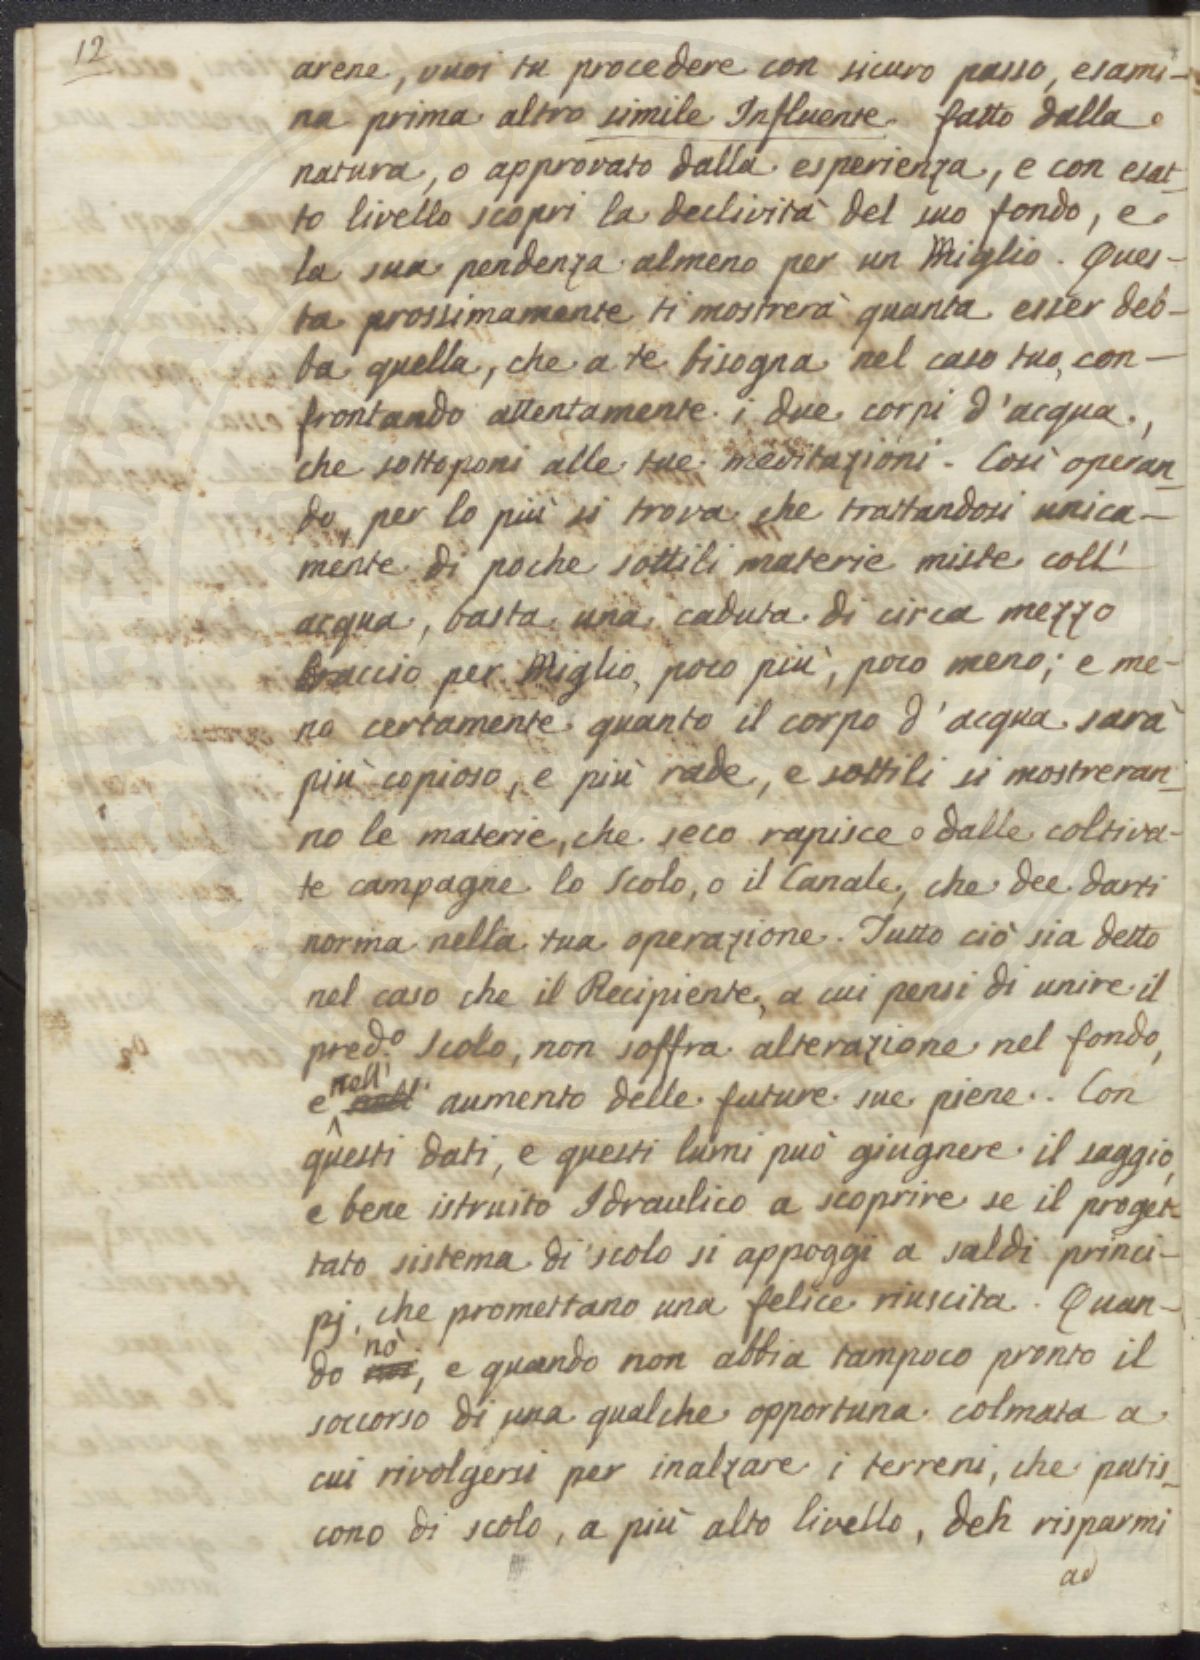 12
arene, vuoi tu procedere con sicuro passo, esami-
na prima altro simile Influente fatto dalla
natura, o approvato dalla esperienza, e con esat-
to livello scopri la declività del suo fondo, e
la sua pendenza almeno per un Miglio. Ques-
ta prossimamente ti mostrerà quanta esser deb-
ba quella, che a te bisogna nel caso tuo, con-
frontando attentamente i due corpi d'acqua,
che sottoponi alle tue meditazioni. Così operan-
do, per lo più si trova che trattandosi unica-
mente di poche sottili materie miste coll'
acqua, basta una caduta di circa mezzo
braccio per Miglio, poco più, poco meno; e me-
no certamente quanto il corpo d'acqua sarà
più copioso, e più rade, e sottili si mostreran-
no le materie, che seco rapisce dalle coltiva-
te campagne lo Scolo, o il Canale, che dee darti
norma nella tua operazione. Tutto ciò sia detto
nel caso che il Recipiente, a cui pensi di unire il
pred.o Scolo, non soffra alterazione nel fondo,
e nell' aumento delle future sue piene. Con
questi dati, e questi lumi può giugnere il saggio,
e bene istruito Idraulico a scoprire se il proget-
tato sistema di scolo si appoggi a saldi princi-
pj, che promettano una felice riuscita. Quan-
do nò, e quando non abbia tampoco pronto il
soccorso di una qualche opportuna colmata a
cui rivolgersi per inalzare i terreni, che patis-
cono di scolo, a più alto livello, deh risparmi
ad